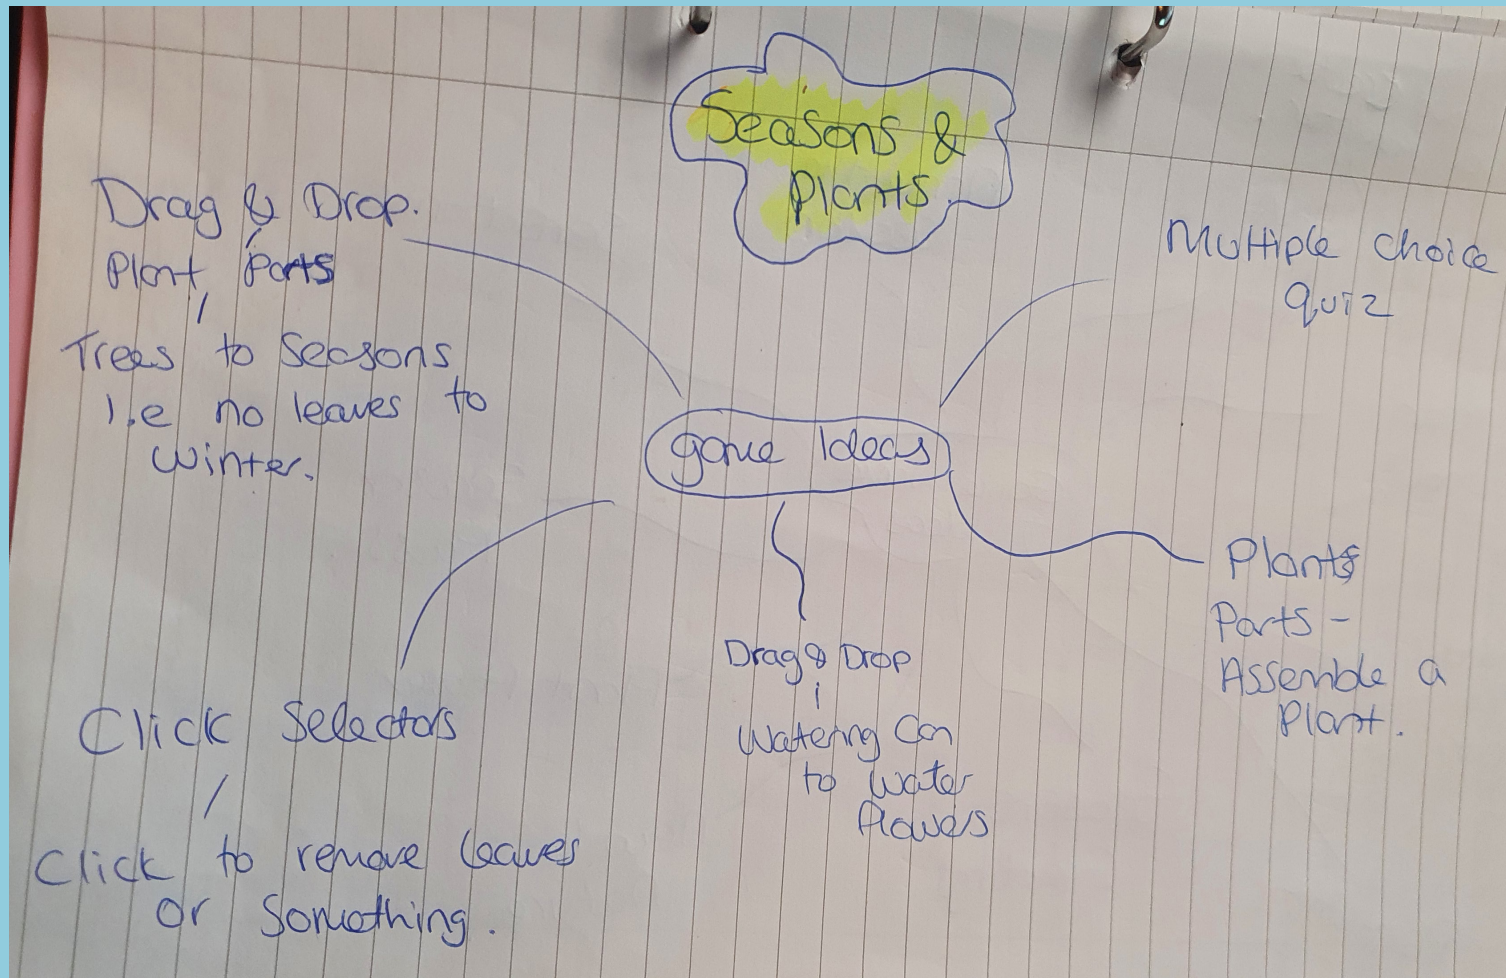 Seasons &
Plants
Drag & Drop.
Plant Parts
Trees to Seasons
i.e no leaves to
Winter.
Multiple Choice
Quiz
game Ideas
Plants
Parts -
Assemble a
Plant.
Drag & Drop
Watering Can
to water
flowers
Click Selectors
Click to remove leaves
or Something.